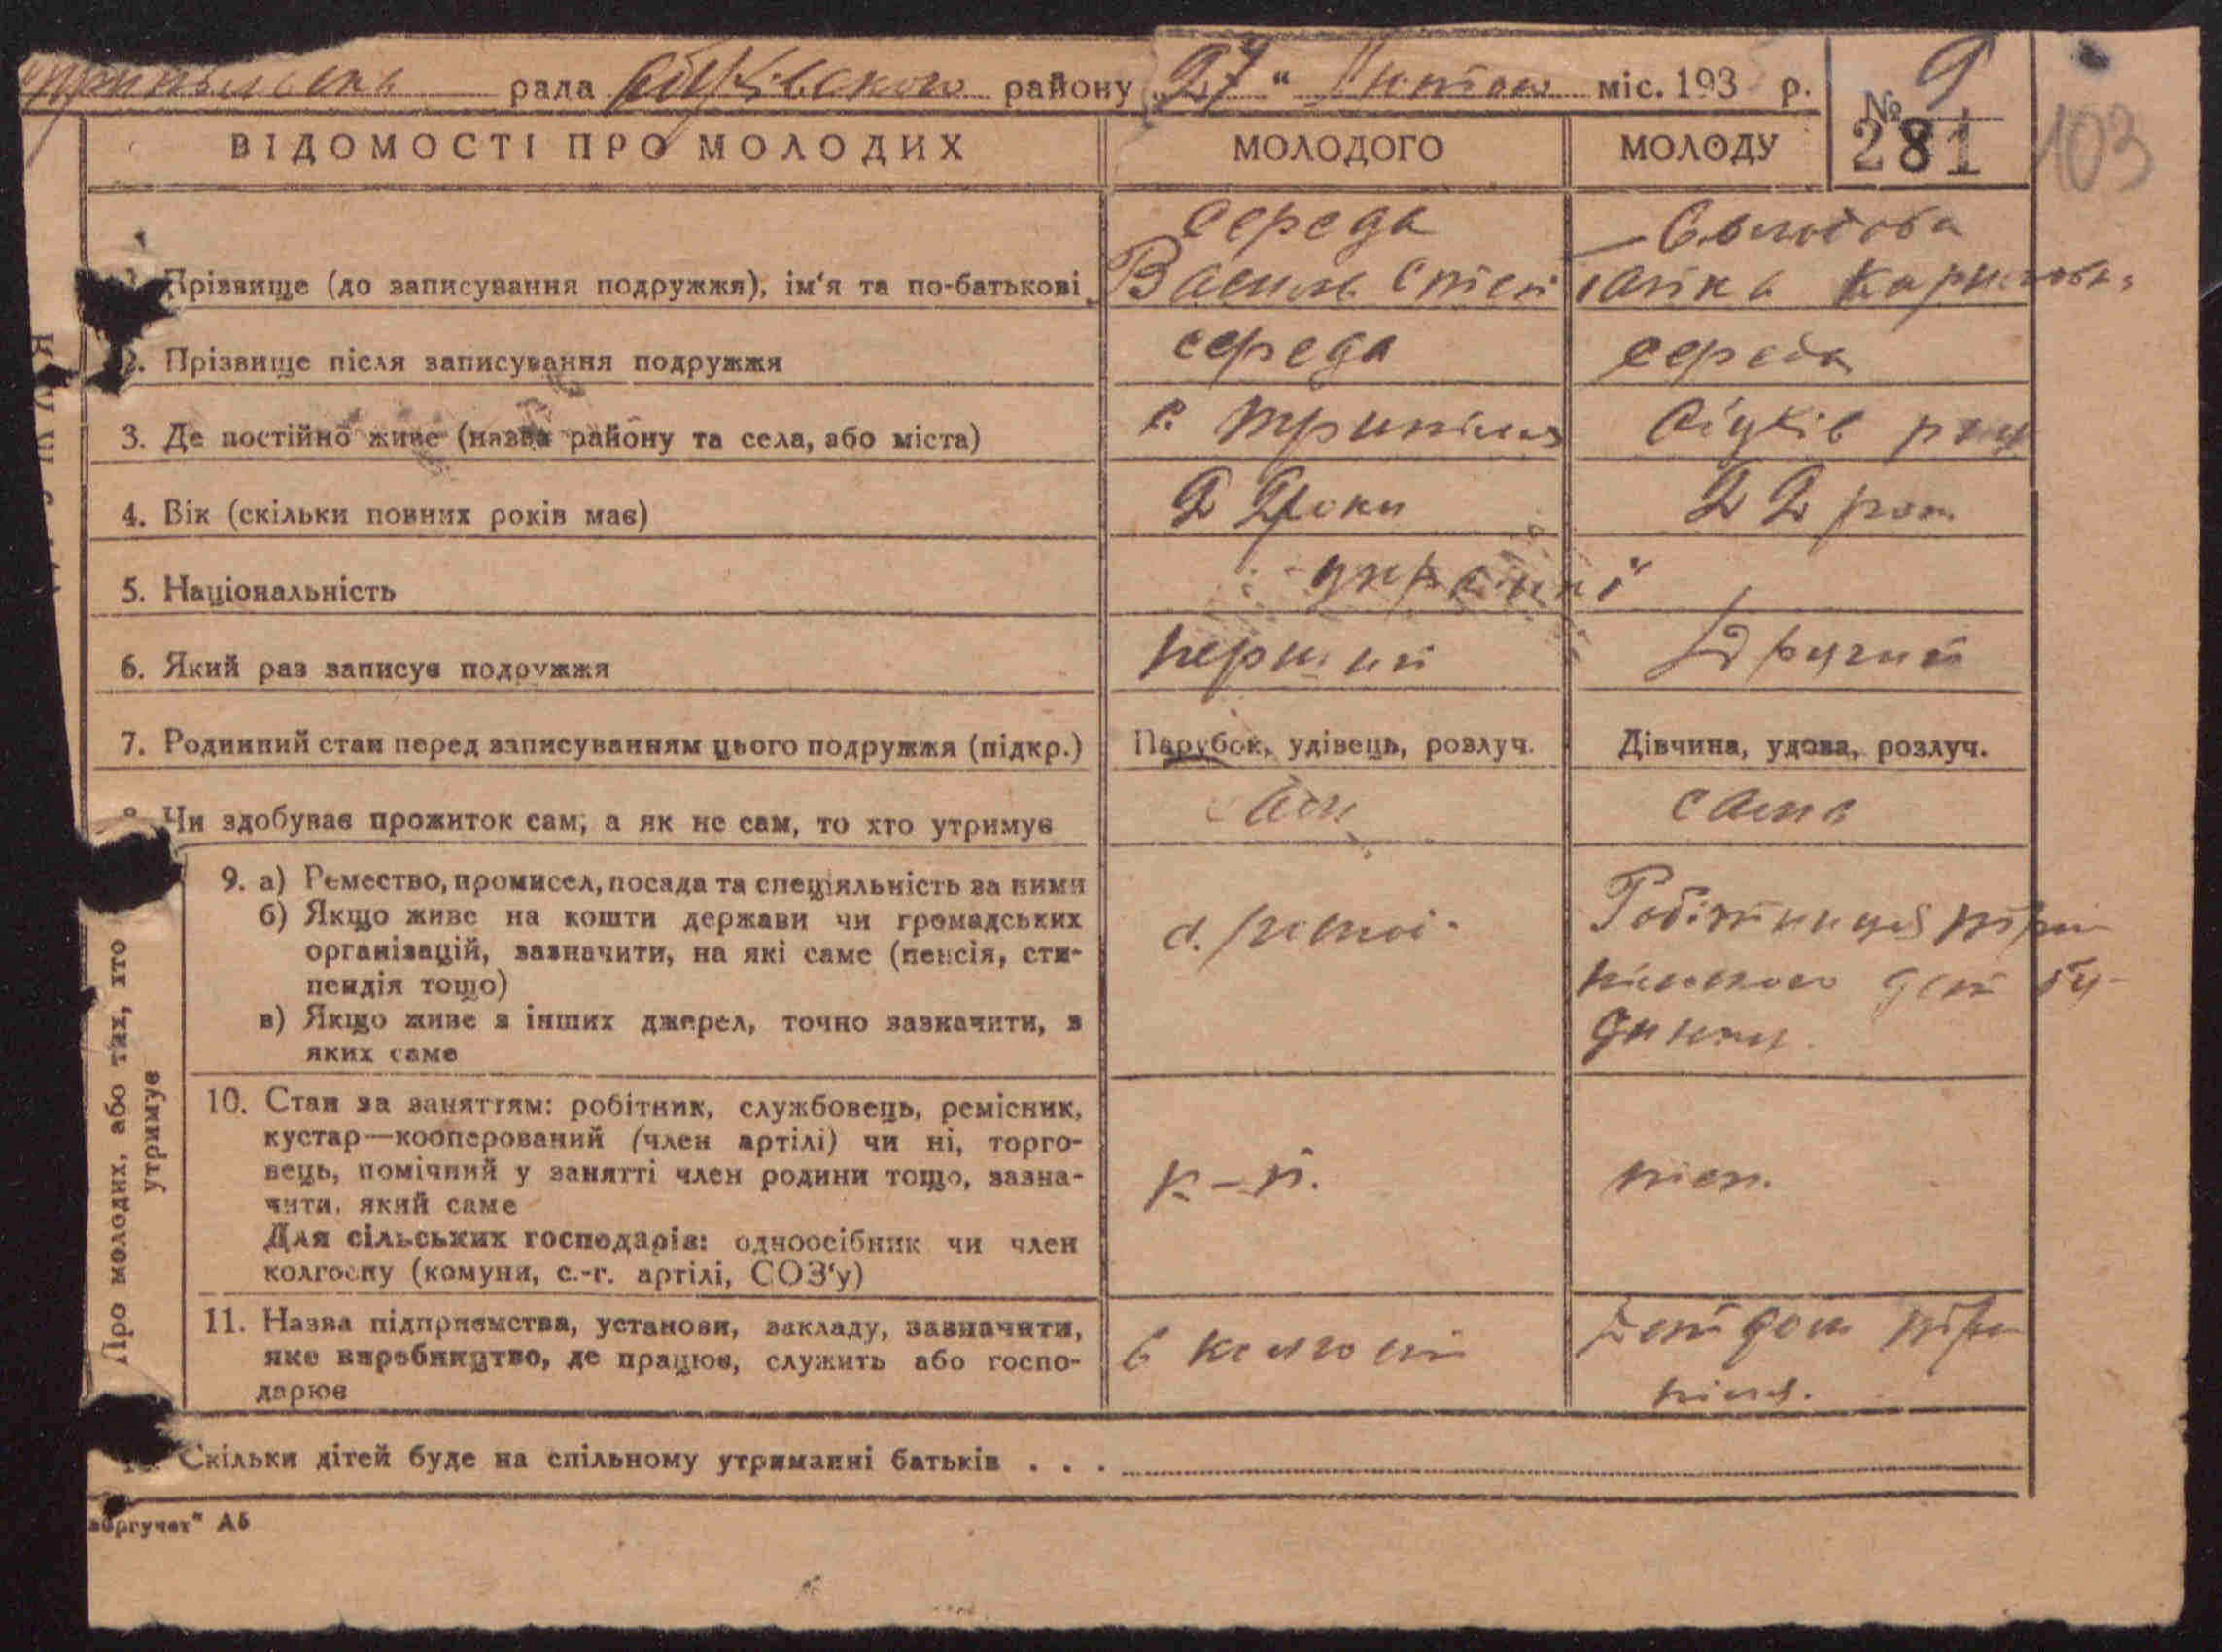 рада району 27 " міс. 193 р.
№ 9
281
103
ВІДОМОСТІ ПРО МОЛОДИХ
МОЛОДОГО
МОЛОДУ
Прізвище (до записування подружжя), ім'я та по-батькові
Середа
Василь
2. Прізвище після записування подружжя
середа
середа
3. Де постійно живе (назва району та села, або міста)
с. Трипілля
4. Вік (скільки повних років має)
22 роки
22 рок
5. Національність
україн
6. Який раз записує подружжя
перший
Другий
7. Родинний стан перед записуванням цього подружжя (підкр.)
Парубок, удівець, розлуч.
Дівчина, удова, розлуч.
8. Чи здобуває прожиток сам, а як не сам, то хто утримує
сам
сама
Про молодих, або тих, хто утримує
9. а) Ремество, промисел, посада та спеціяльність за ними
б) Якщо живе на кошти держави чи громадських
організацій, зазначити, на які саме (пенсія, сти-
пендія тощо)
в) Якщо живе з інших джерел, точно зазначити, з
яких саме
Робітниця
10. Стан за заняттям: робітник, службовець, ремісник,
кустар—кооперований (член артілі) чи ні, торго-
вець, помічний у занятті член родини тощо, зазна-
чити, який саме
Для сільських господарів: одноосібник чи член
колгоспу (комуни, с.-г. артілі, СОЗ'у)
к-п.
11. Назва підприємства, установи, закладу, зазначити,
яке виробництво, де працює, служить або госпо-
дарює
в колгоспі
Скільки дітей буде на спільному утриманні батьків . . .
ргучет" А5